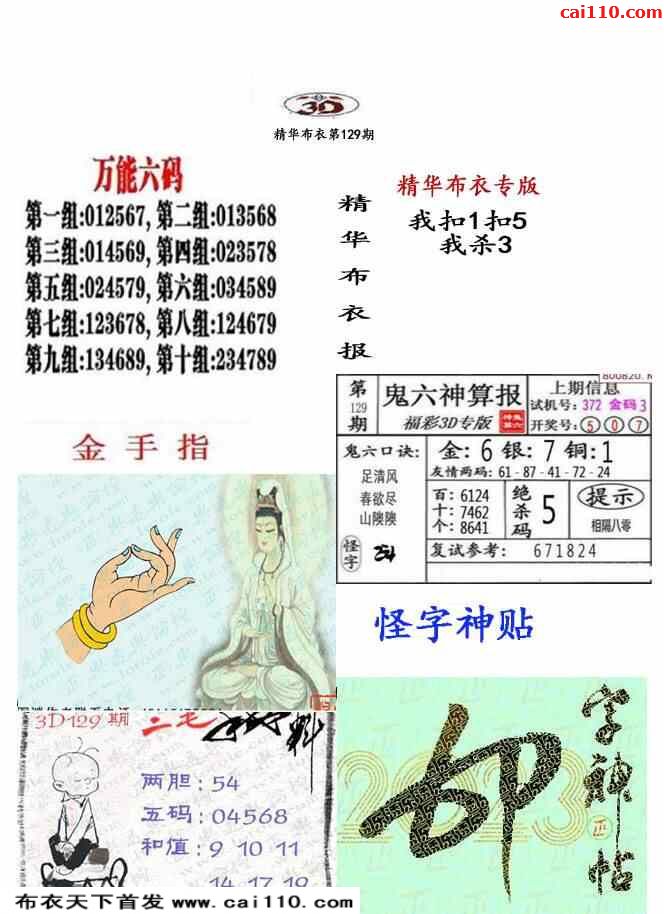 cai110.com
3D
精华布衣第129期
万能六码
第一组:012567,第二组:013568
第三组:014569,第四组:023578
第五组:024579,第六组:034589
第七组:123678,第八组:124679
第九组:134689,第十组:234789
精华布衣报
精华布衣专版
我扣1扣5
我杀3
金手指
第129期
鬼六神算报
福彩3D专版
上期信息
试机号: 372 金码 3
开奖号: 5 0 7
鬼六口诀:
足清风
春欲尽
山陕陕
怪字
金: 6 银: 7 铜: 1
友情两码: 61-87-41-72-24
百: 6124
十: 7462
个: 8641
绝杀码 5
提示
相隔八零
复试参考: 671824
怪字神贴
字神帖
2023
3D129期
二毛
料
两胆: 54
五码: 04568
和值: 9 10 11
14 17 19
布衣天下首发 www.cai110.com